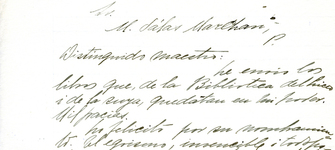 Sr.
M. Salas Marchan,
P.
Distinguido maestro:
he envío los
libros que, de la Biblioteca del Liceo
i de la suya, quedaban en mi poder.
Mil gracias.
hi felicito por su nombramien
to. El egoismo, invencible i todopo